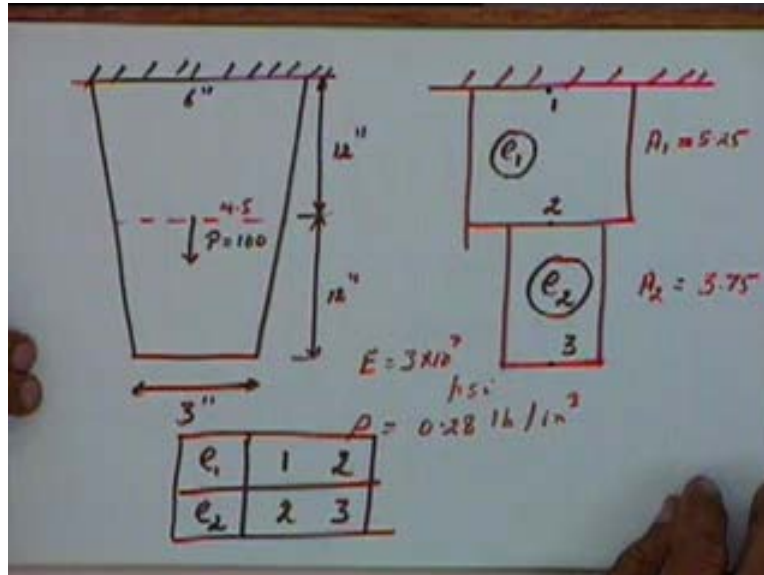 6"
12"
4.5
P=100
12"
3"
1
e1
A1 = 5.25
2
e2
A2 = 3.75
3
E = 3×10^7
psi
ρ = 0.28 lb/in^3
e1 1 2
e2 2 3